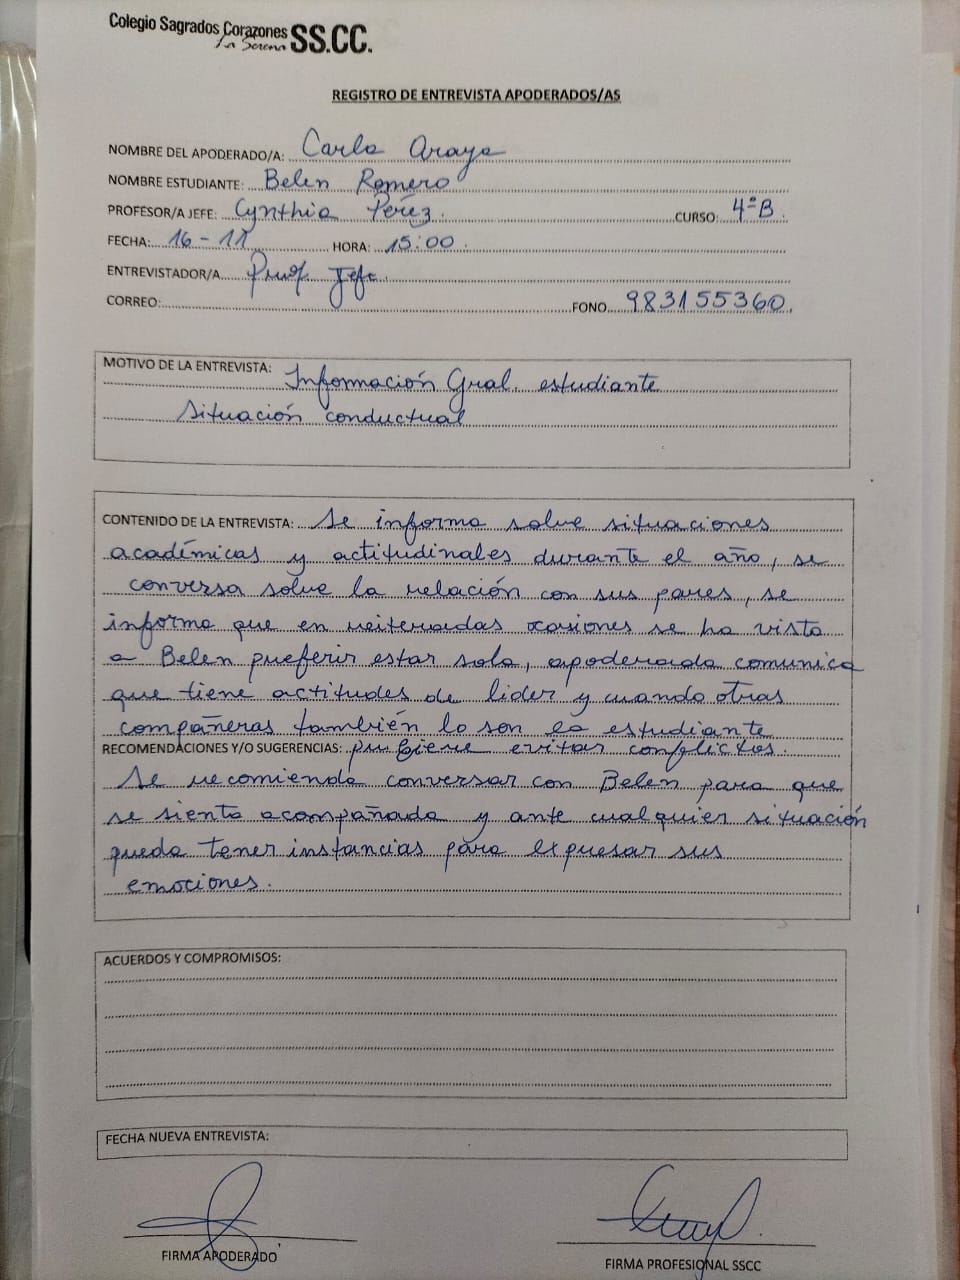 Colegio Sagrados Corazones
La Serena SS.CC.
REGISTRO DE ENTREVISTA APODERADOS/AS
NOMBRE DEL APODERADO/A: Carla Araya
NOMBRE ESTUDIANTE: Belen Romero
PROFESOR/A JEFE: Cynthia Pérez. CURSO: 4ºB.
FECHA: 16-11 HORA: 15:00.
ENTREVISTADOR/A Prof. Jefe.
CORREO: FONO 983155360.
MOTIVO DE LA ENTREVISTA: Información Gral. estudiante
Situación conductual
CONTENIDO DE LA ENTREVISTA: Se informa sobre situaciones
académicas y actitudinales durante el año, se
conversa sobre la relación con sus pares, se
informa que en reiteradas ocasiones se ha visto
a Belen preferir estar sola, apoderada comunica
que tiene actitudes de lider y cuando otras
compañeras también lo son la estudiante
RECOMENDACIONES Y/O SUGERENCIAS: prefiere evitar conflictos.
Se recomienda conversar con Belen para que
se sienta acompañada y ante cualquier situación
pueda tener instancias para expresar sus
emociones.
ACUERDOS Y COMPROMISOS:
FECHA NUEVA ENTREVISTA:
FIRMA APODERADO FIRMA PROFESIONAL SSCC